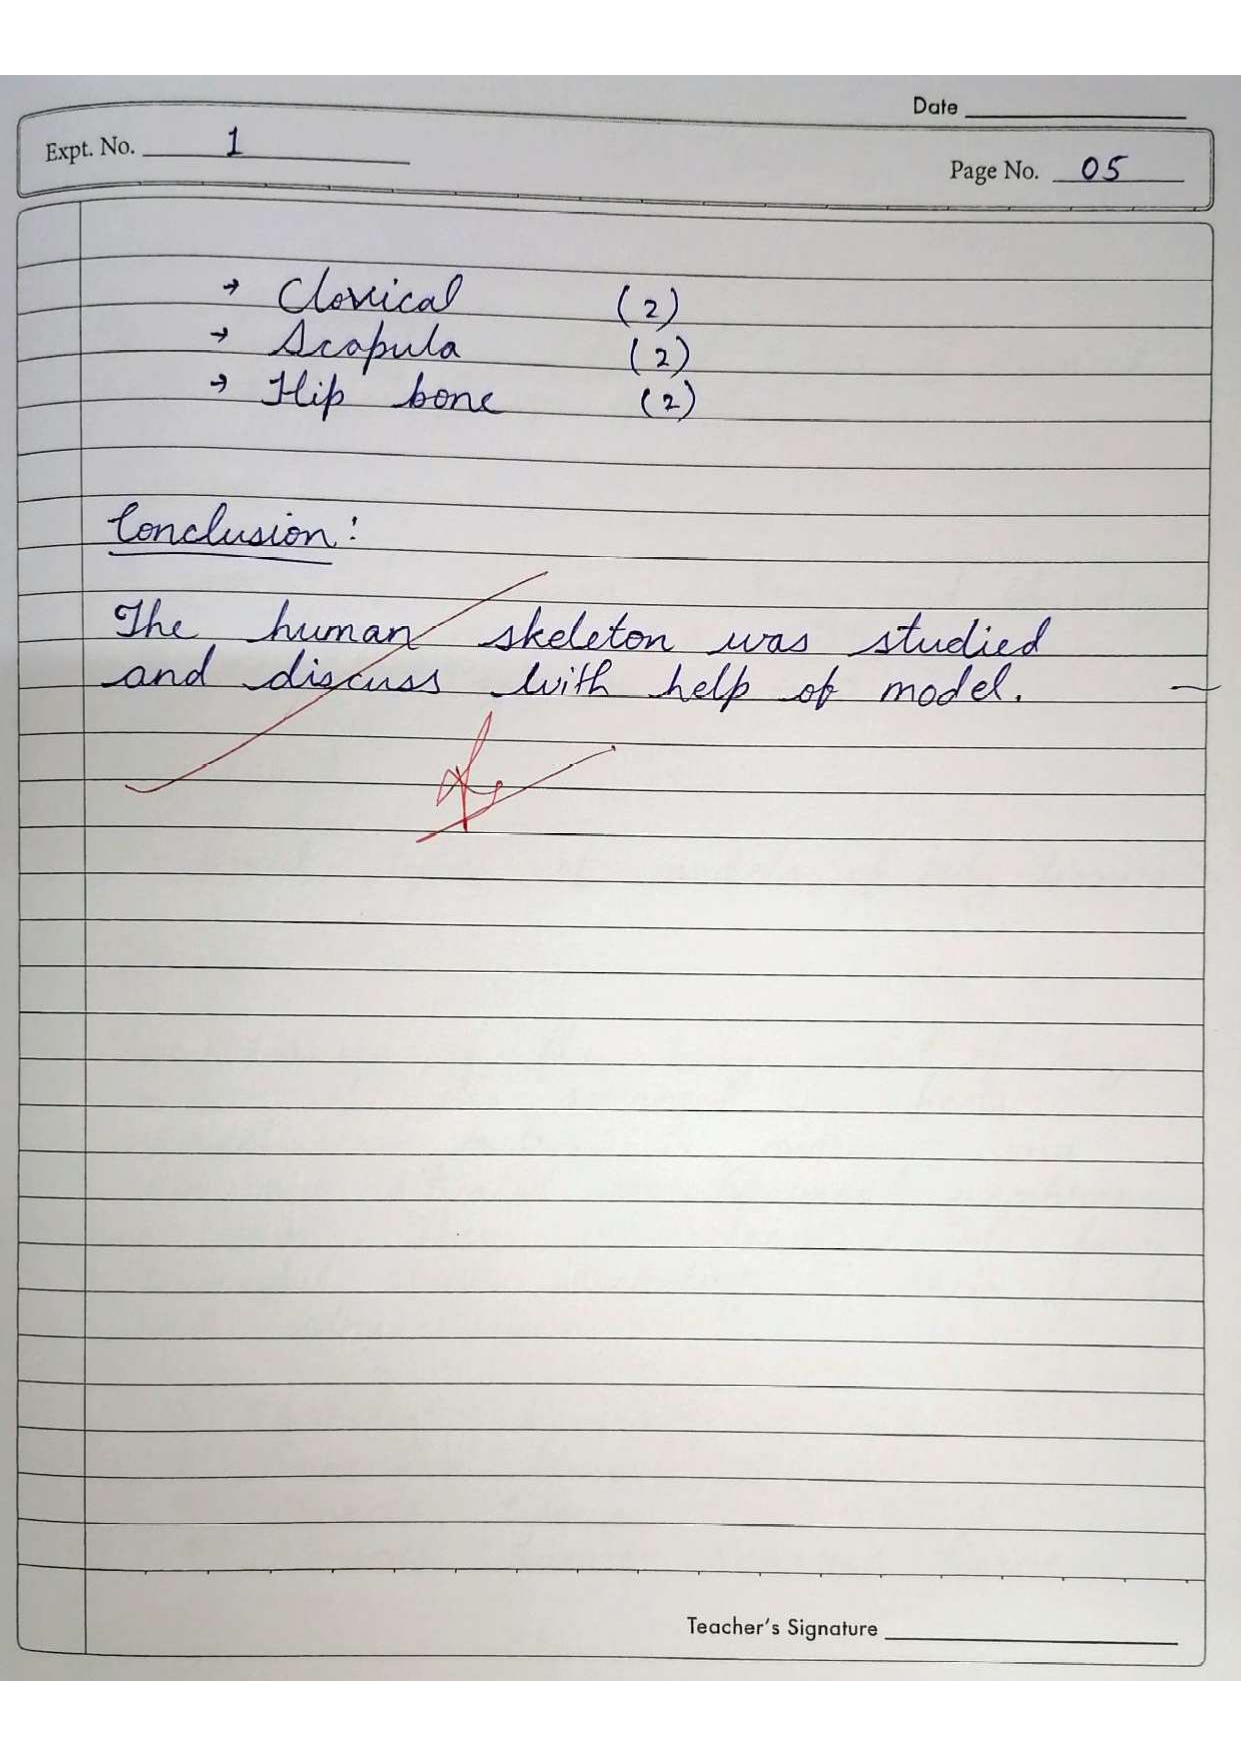 Date
Expt. No. 1
Page No. 05
→ Clovical (2)
→ Scapula (2)
→ Hip bone (2)
Conclusion:
The human skeleton was studied
and discuss with help of model.
Teacher's Signature